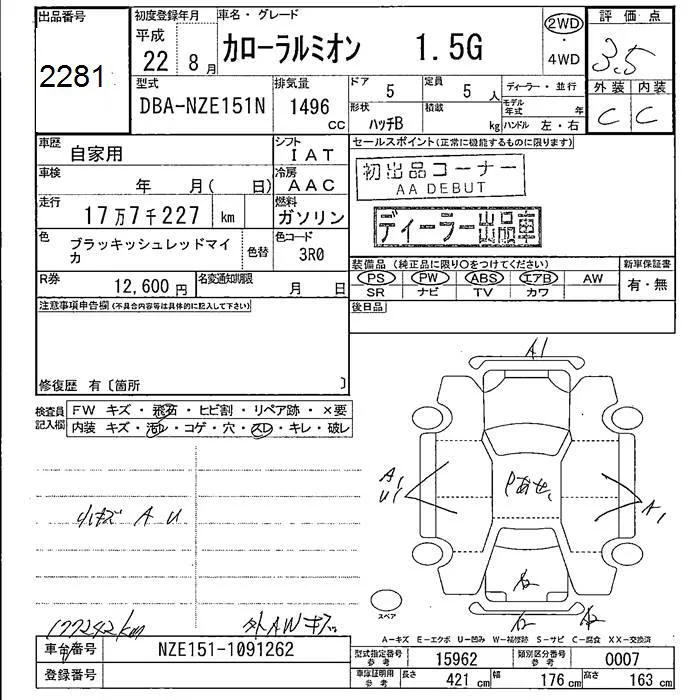 出品番号
2281
初度登録年月
平成
22 8月
車名・グレード
カローラルミオン 1.5G
2WD
・
4WD
評価点
3.5
外装 内装
C C
型式
DBA-NZE151N
排気量
1496
CC
ドア
5
定員
5人
ディーラー・並行
形状
ハッチB
積載
kg
モデル年式
年
ハンドル 左・右
車歴
自家用
シフト
IAT
車検
年 月( 日)
冷房
AAC
走行
17万7千227 km
燃料
ガソリン
色
ブラッキッシュレッドマイカ
色替
色コード
3R0
R券
12,600円
名変通知期限
月 日
セールスポイント(正常に機能するものに限ります)
初出品コーナー
AA DEBUT
ディーラー出品車
装備品(純正品に限り〇をつけてください)
新車保証書
PS PW ABS エアB AW
SR ナビ TV カワ
有・無
後日品
注意事項申告欄(不具合内容等は具体的に記入して下さい)
修復歴 有〔箇所 〕
検査員記入欄
FW キズ・飛石・ヒビ割・リペア跡・×要
内装 キズ・汚レ・コゲ・穴・スレ・キレ・破レ
小キズ A U
177242km
外AWキズ
A1
A1
U1
Pあせ、
A1
A2
A2
A2
スペア
A-キズ E-エクボ U-凹み W-補修跡 S-サビ C-腐食 XX-交換済
車台番号
NZE151-1091262
登録番号
型式指定番号
参考
15962
類別区分番号
参考
0007
車庫証明用
参考
長さ
421 cm
幅
176 cm
高さ
163 cm